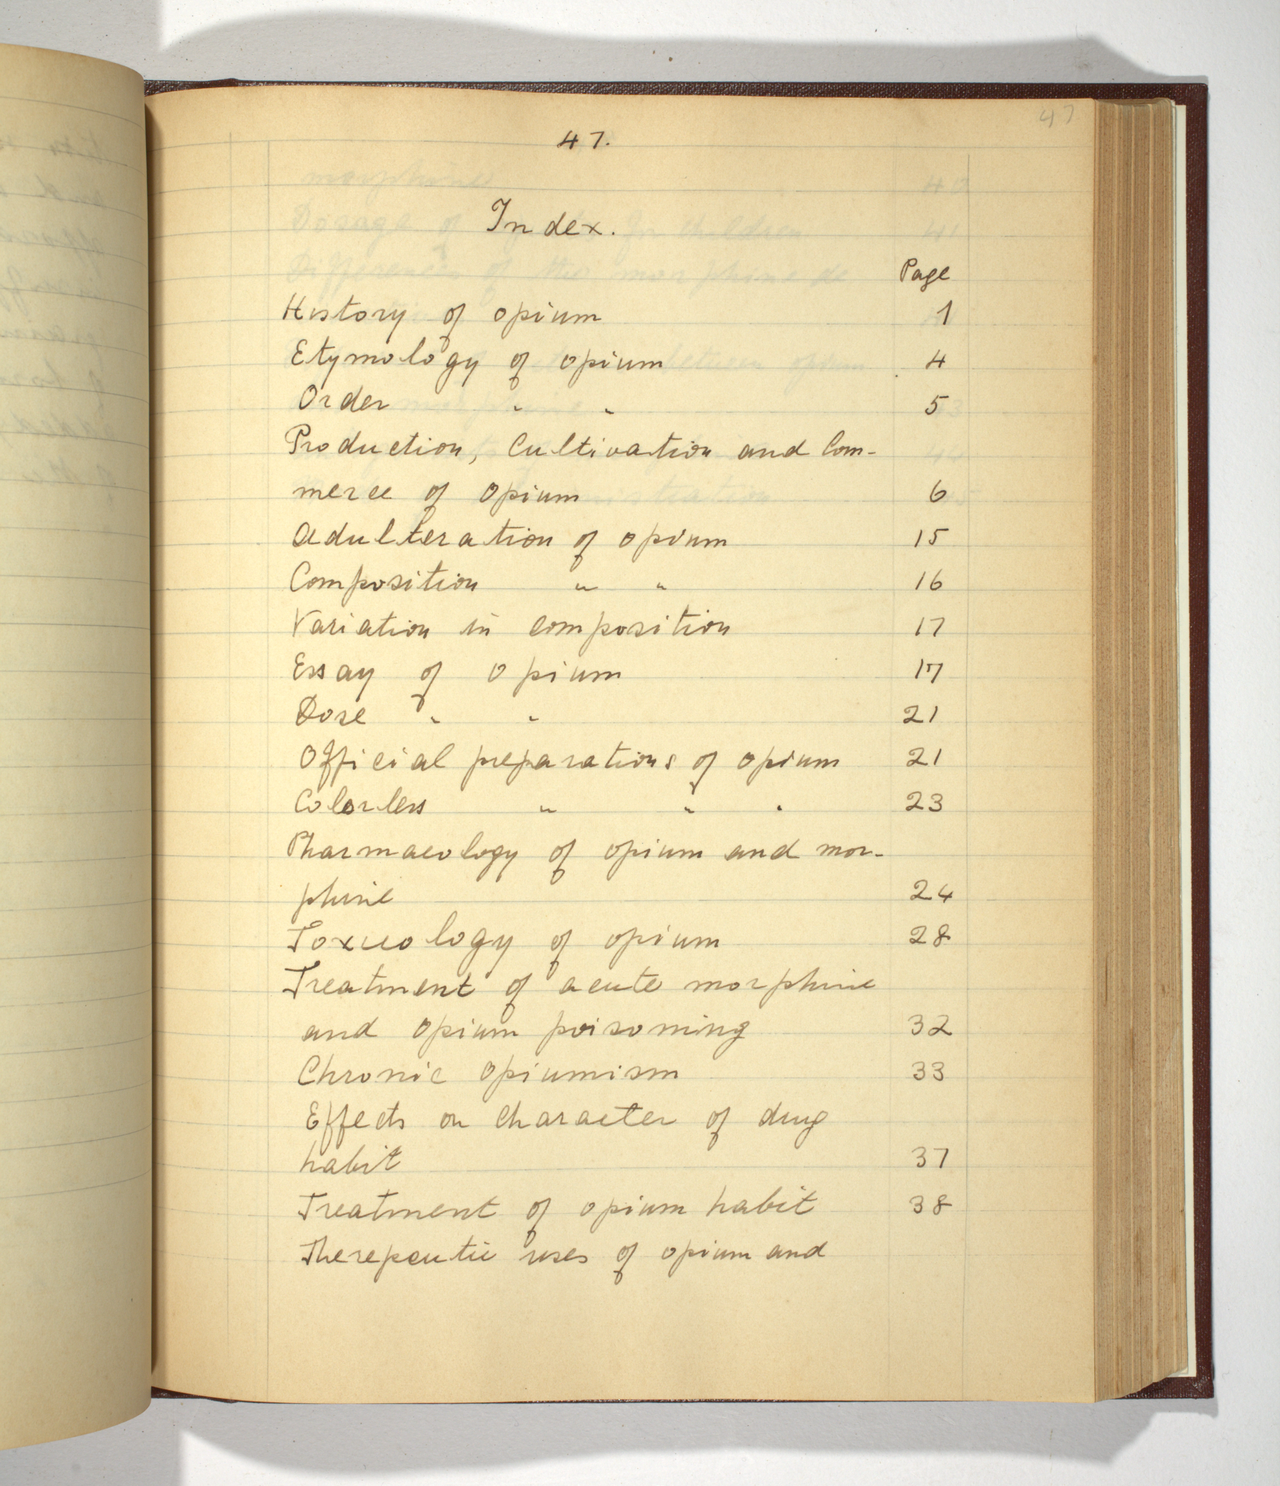 47
47.
Index.
Page
History of opium 1
Etymology of opium 4
Order " " 5
Production, Cultivation and Com-
merce of opium 6
Adulteration of opium 15
Composition " " 16
Variation in composition 17
Essay of opium 17
Dose " " 21
Official preparations of opium 21
Colorless " " " 23
Pharmacology of opium and mor-
phine 24
Toxicology of opium 28
Treatment of acute morphine
and opium poisoning 32
Chronic Opiumism 33
Effects on Character of drug
habit 37
Treatment of opium habit 38
Therepeutic uses of opium and